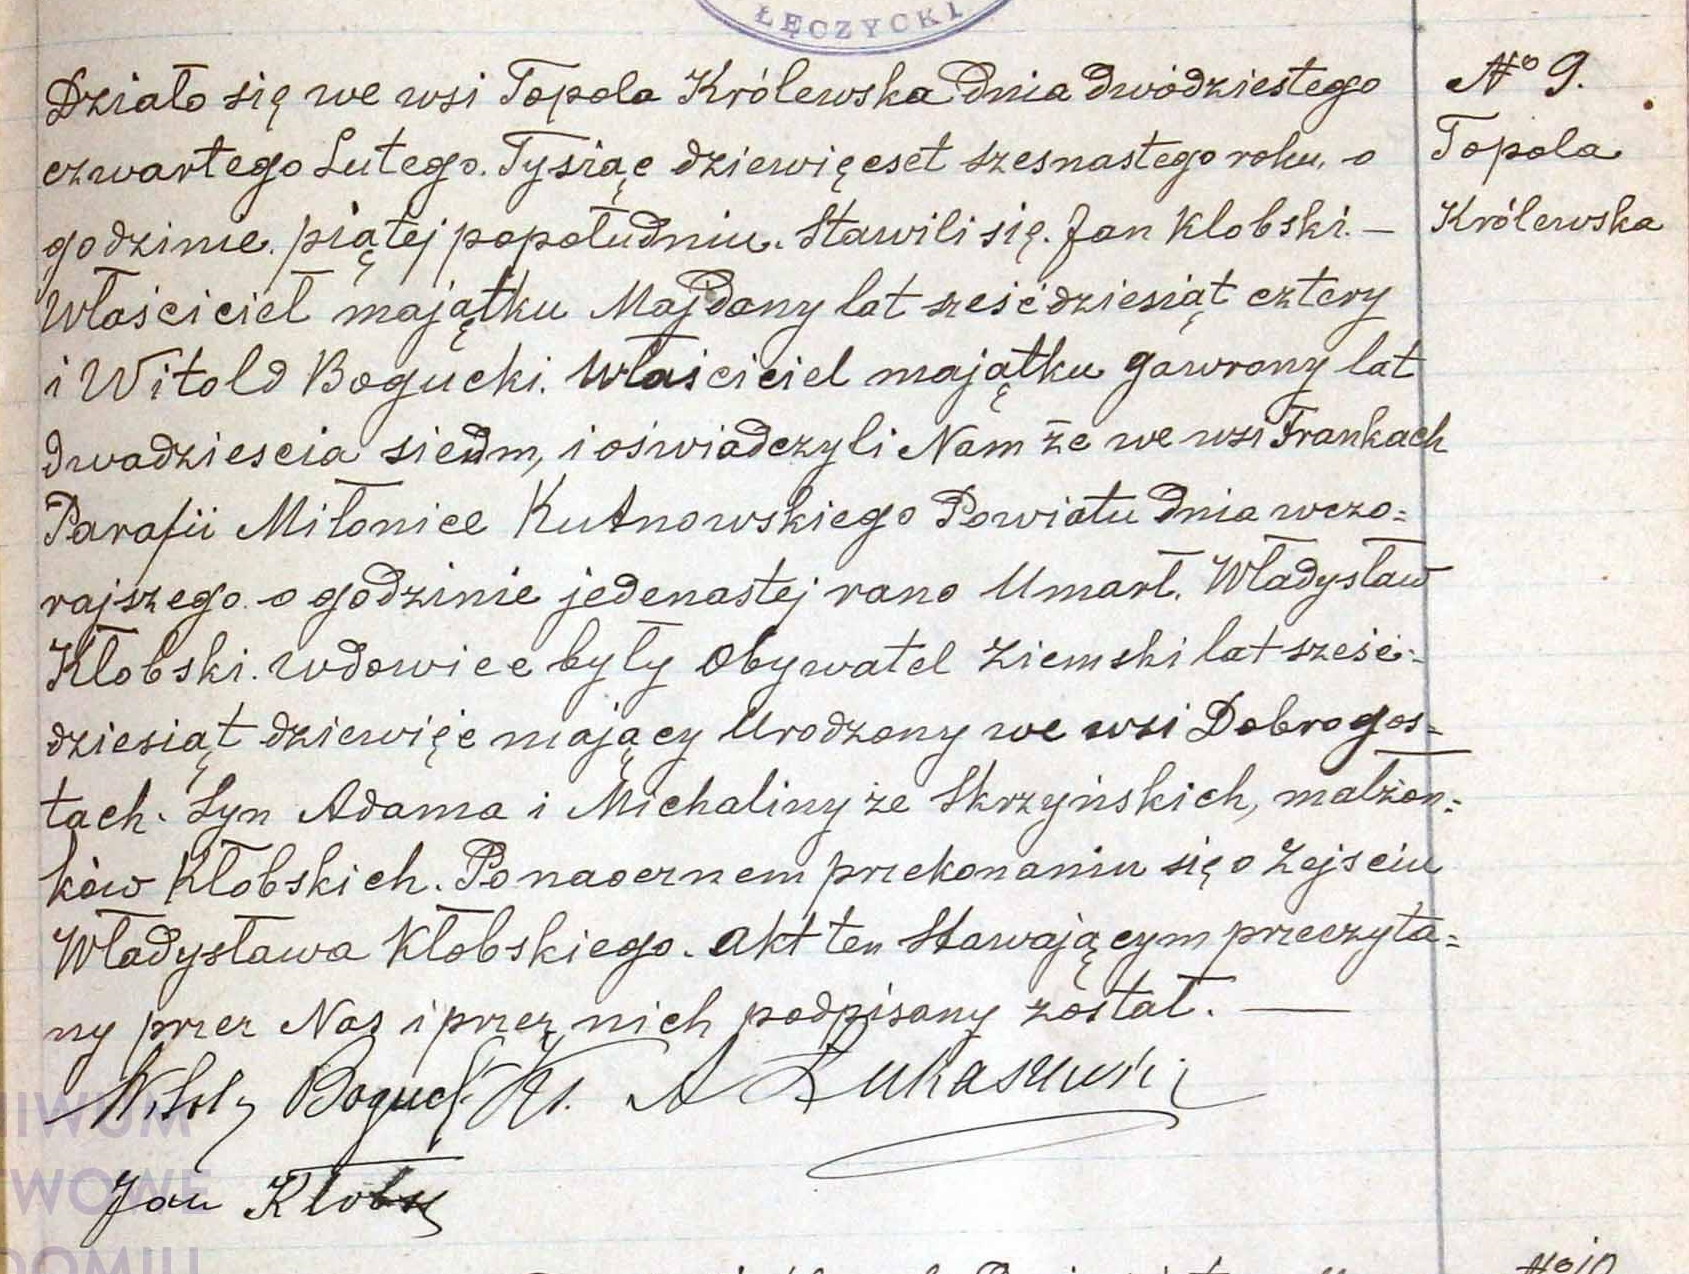 ŁĘCZYCKI
Działo się we wsi Topola Królewska dnia dwódziestego
czwartego Lutego. Tysiąc dziewięcset szesnastego roku, o
godzinie. piątej popołudniu. Stawili się. Jan Klobski. —
Właściciel majątku Majdany lat sześćdziesiąt cztery
i Witold Bogucki. Właściciel majątku Gawrony lat
dwadziescia siedm, i oświadczyli Nam że we wsi Frankach
Parafii Miłonice Kutnowskiego Powiatu dnia wczo=
rajszego o godzinie jedenastej rano Umarł. Władysław
Kłobski. wdowiec były Obywatel Ziemski lat sześć=
dziesiąt dziewięć mający Urodzony we wsi Dobrogos=
tach. Syn Adama i Michaliny ze Skrzyńskich, małżon=
ków Kłobskich. Po naocznem przekonaniu się o Zejsciu
Władysława Kłobskiego. Akt ten Stawającym przeczyta=
ny przez Nas i przez nich podpisany został. —
Witold Bogucki Ks. A Łukaszewski
Jan Kłobski
No 9.
Topola
Królewska
No 10